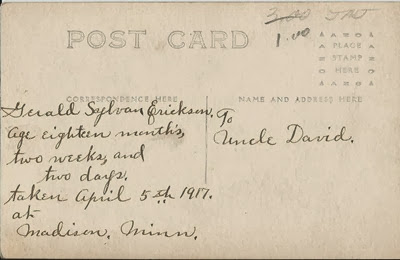 3.00
1.00
POST CARD
PLACE
STAMP
HERE
CORRESPONDENCE HERE
NAME AND ADDRESS HERE
Gerald Sylvan Erickson.
age eighteen months,
two weeks, and
two days.
taken April 5th 1917.
at
Madison, Minn.
To
Uncle David.